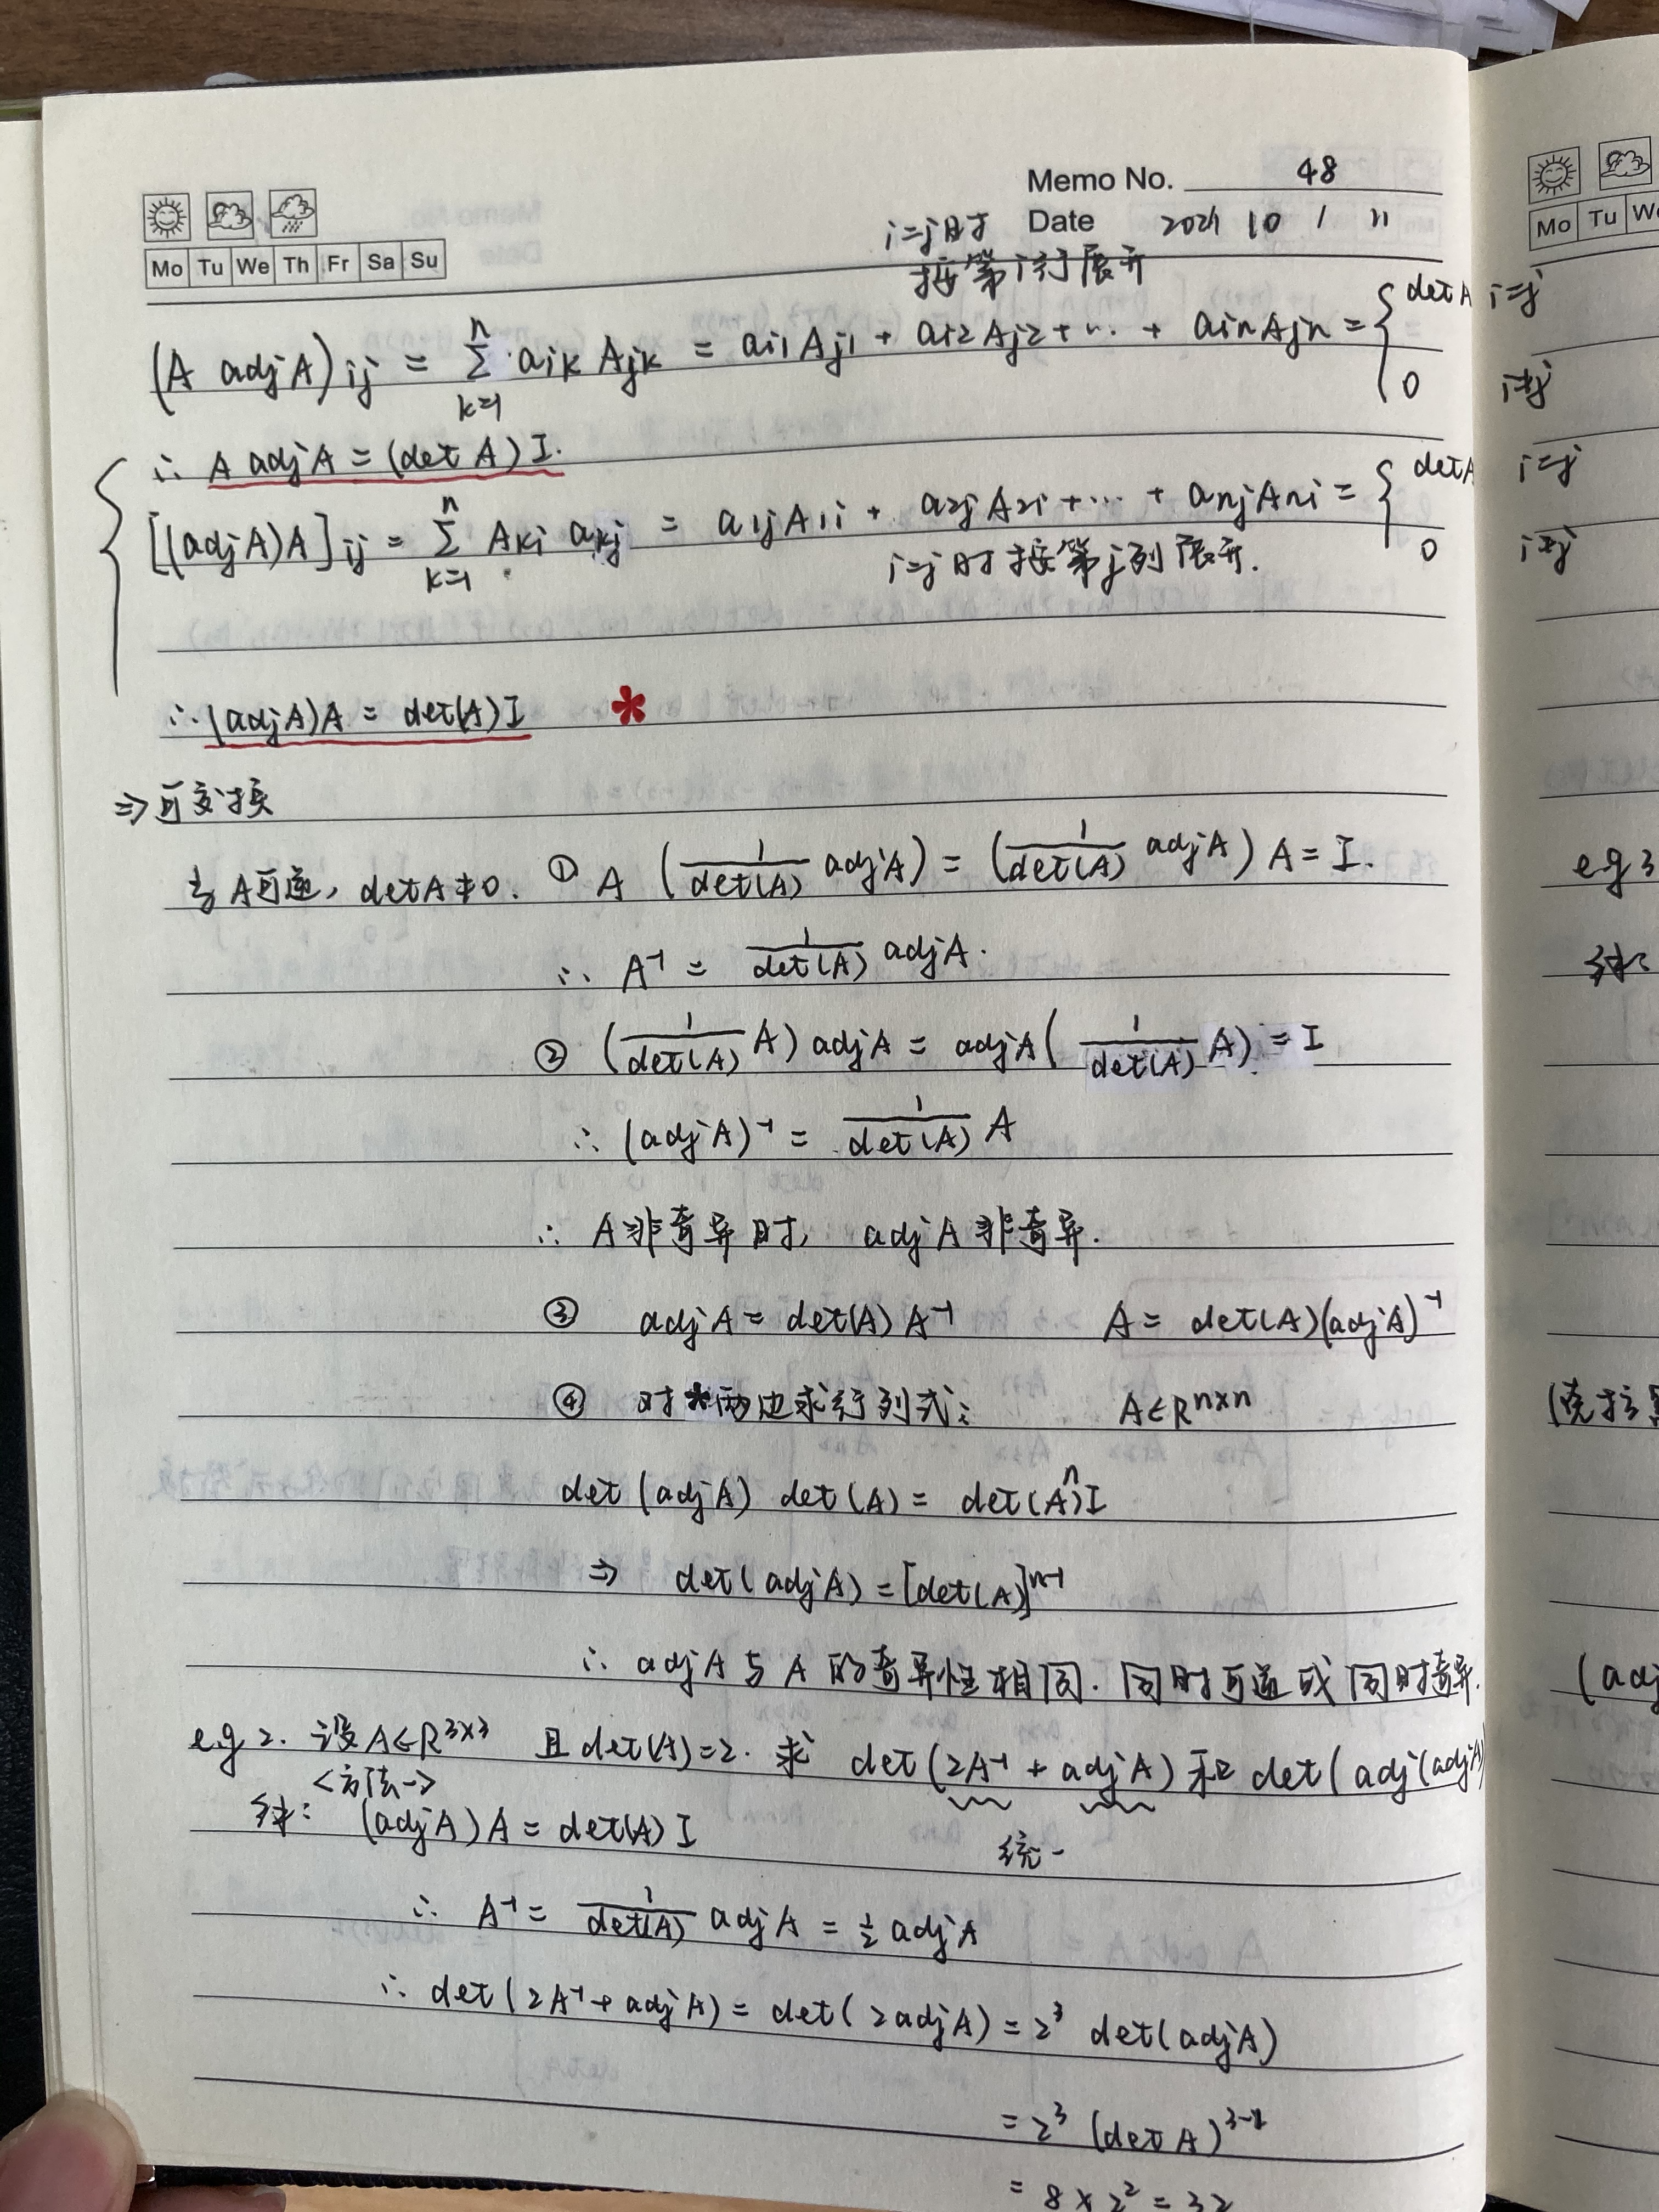 Memo No. 48
Date 2021 10 / 11
Mo Tu We Th Fr Sa Su
i=j时
按第i行展开
(A adjA)ij = Σ(k=1→n) aik Ajk = ai1Aj1 + ai2Aj2 + … + ainAjn = { detA i=j
0 i≠j
∴ A adjA = (det A) I.
[(adjA)A]ij = Σ(k=1→n) Aki akj = a1jA1i + a2jA2i + … + anjAni = { detA i=j
0 i≠j
i=j时按第j列展开.
∴ (adjA)A = det(A)I *
⇒可交换
当A可逆, detA≠0. ① A (1/det(A) adjA) = (1/det(A) adjA) A = I.
∴ A⁻¹ = 1/det(A) adjA.
② (1/det(A) A) adjA = adjA (1/det(A) A) = I
∴ (adjA)⁻¹ = 1/det(A) A
∴ A非奇异时, adjA非奇异.
③ adjA = det(A) A⁻¹ A = det(A)(adjA)⁻¹
④ 对*两边求行列式: A∈Rⁿˣⁿ
det(adjA) det(A) = det(A)ⁿI
⇒ det(adjA) = [det(A)]ⁿ⁻¹
∴ adjA与A的奇异性相同. 同时可逆或同时奇异.
eg 2. 设A∈R³ˣ³ 且det(A)=2. 求 det(2A⁻¹ + adjA)和det(adj(adjA)
<方法一> 统一
解: (adjA)A = det(A) I
∴ A⁻¹ = 1/det(A) adjA = ½ adjA
∴ det(2A⁻¹ + adjA) = det(2adjA) = 2³ det(adjA)
= 2³ (detA)³⁻¹
= 8 × 2² = 32
Mo Tu We
eg 3
解:
(adj